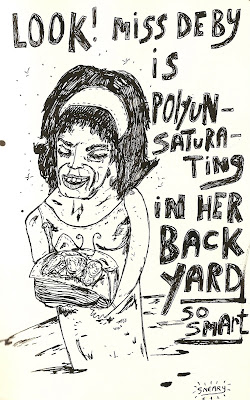 LOOK! MISS DEBY
iS
POlYUN-
SATURA-
TiNG
iN HER
BACK
YARD
SO
SMARt
SNEARY